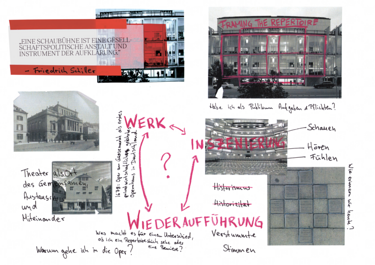 „EINE SCHAUBÜHNE IST EINE GESELL-
SCHAFTSPOLITISCHE ANSTALT UND
INSTRUMENT DER AUFKLÄRUNG."
– Friedrich Schiller
FRAMING THE REPERTOIRE
Habe ich als Publikum Aufgaben & Pflichten?
WERK
INSZENIERUNG
?
WIEDERAUFFÜHRUNG
Schauen
Hören
Fühlen
Theater als Ort
des Gemeinsamen
Austausches
und
Miteinander
1678: Oper am Gänsemarkt als erstes
Opernhaus in Deutschland
Historismus
Historizität
Verstummte
Stimmen
Wie erinnern wir heute?
Was macht es für einen Unterschied,
ob ich ein Repertoirestück sehe oder
eine Premiere?
Warum gehe ich in die Oper?